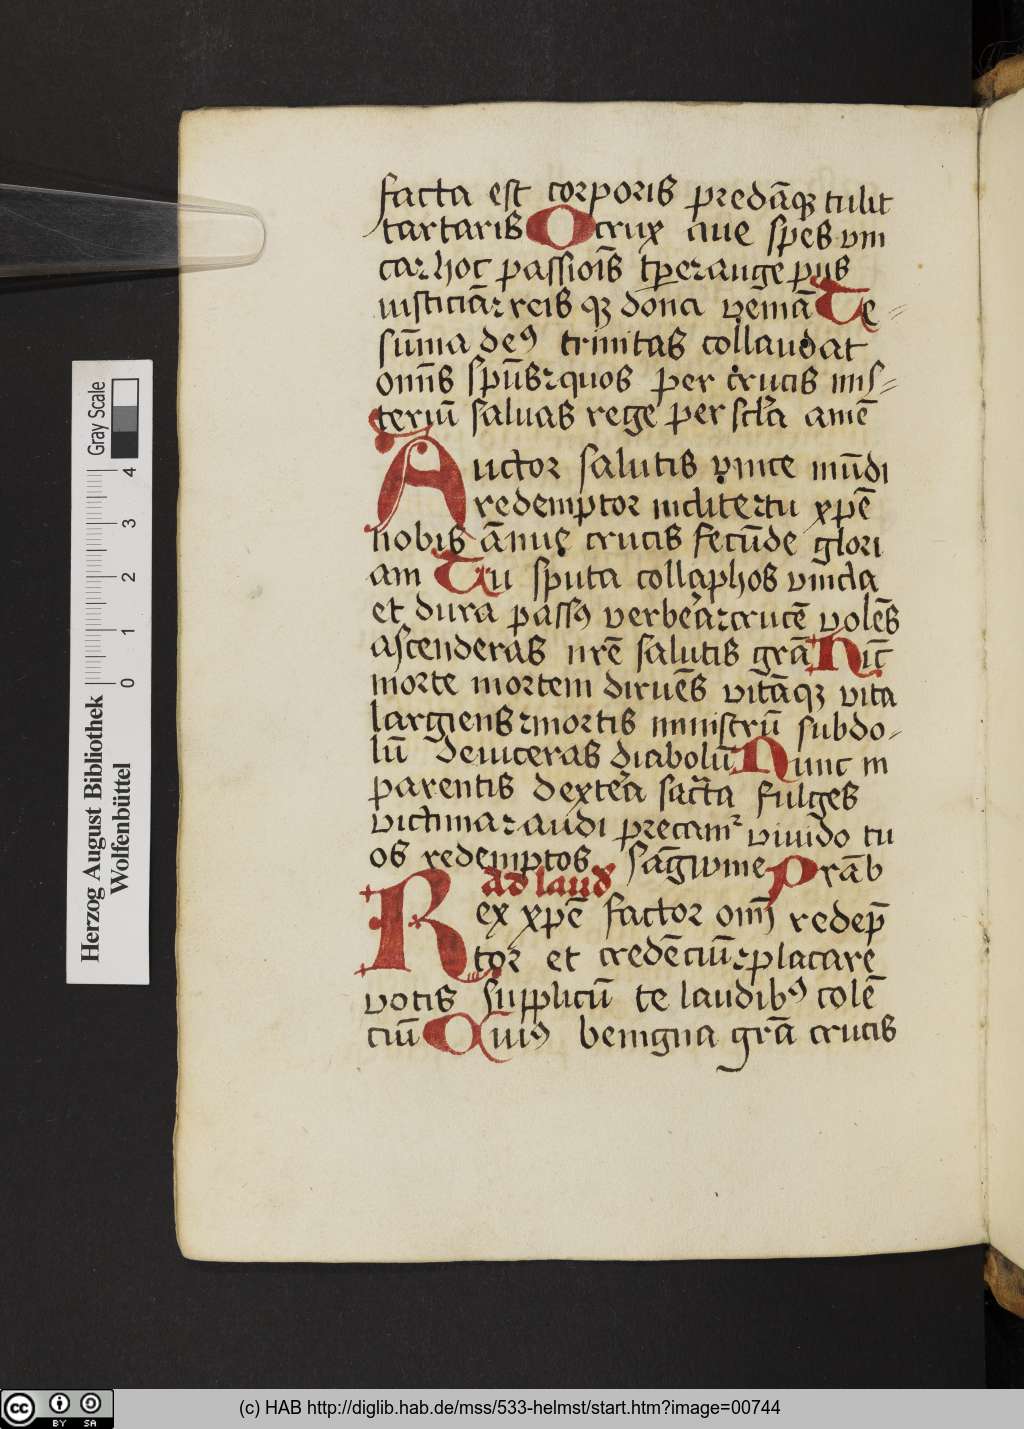 facta est corporis predāqꝫ tulit
tartaris O crux aue spes vni
ca r hoc passiōis tꝑe r auge pijs
iusticiā r reis qꝫ dona vēniā Te
sūma deꝰ trinitas collaudat
omīs spūs r quos per crucis mis-
teriū saluas rege per scla amē
Auctor salutis vnice mūdi
redemptor inclite r tu xpē
nobis ānue crucis fecūde glori
am Tu sputa collaphos vincla
et dura passꝰ verbera r crucē volēs
ascenderas nrē salutis grā Hīc
morte mortem diruēs vitāqꝫ vita
largiens r mortis ministrū subdo-
lū deuiceras diabolū Nunc in
parentis dextera sacra fulges
victima r audi precamr viuido tu
os redemptos sāgwine Prāb
Ad laud
Rex xpē factor omī redēp
tor et credēciū r placare
votis supplicū te laudibꝰ colē
ciū Cuiꝰ benigna grā crucis
Gray Scale
0 1 2 3 4
Herzog August Bibliothek
Wolfenbüttel
cc BY SA
(c) HAB http://diglib.hab.de/mss/533-helmst/start.htm?image=00744